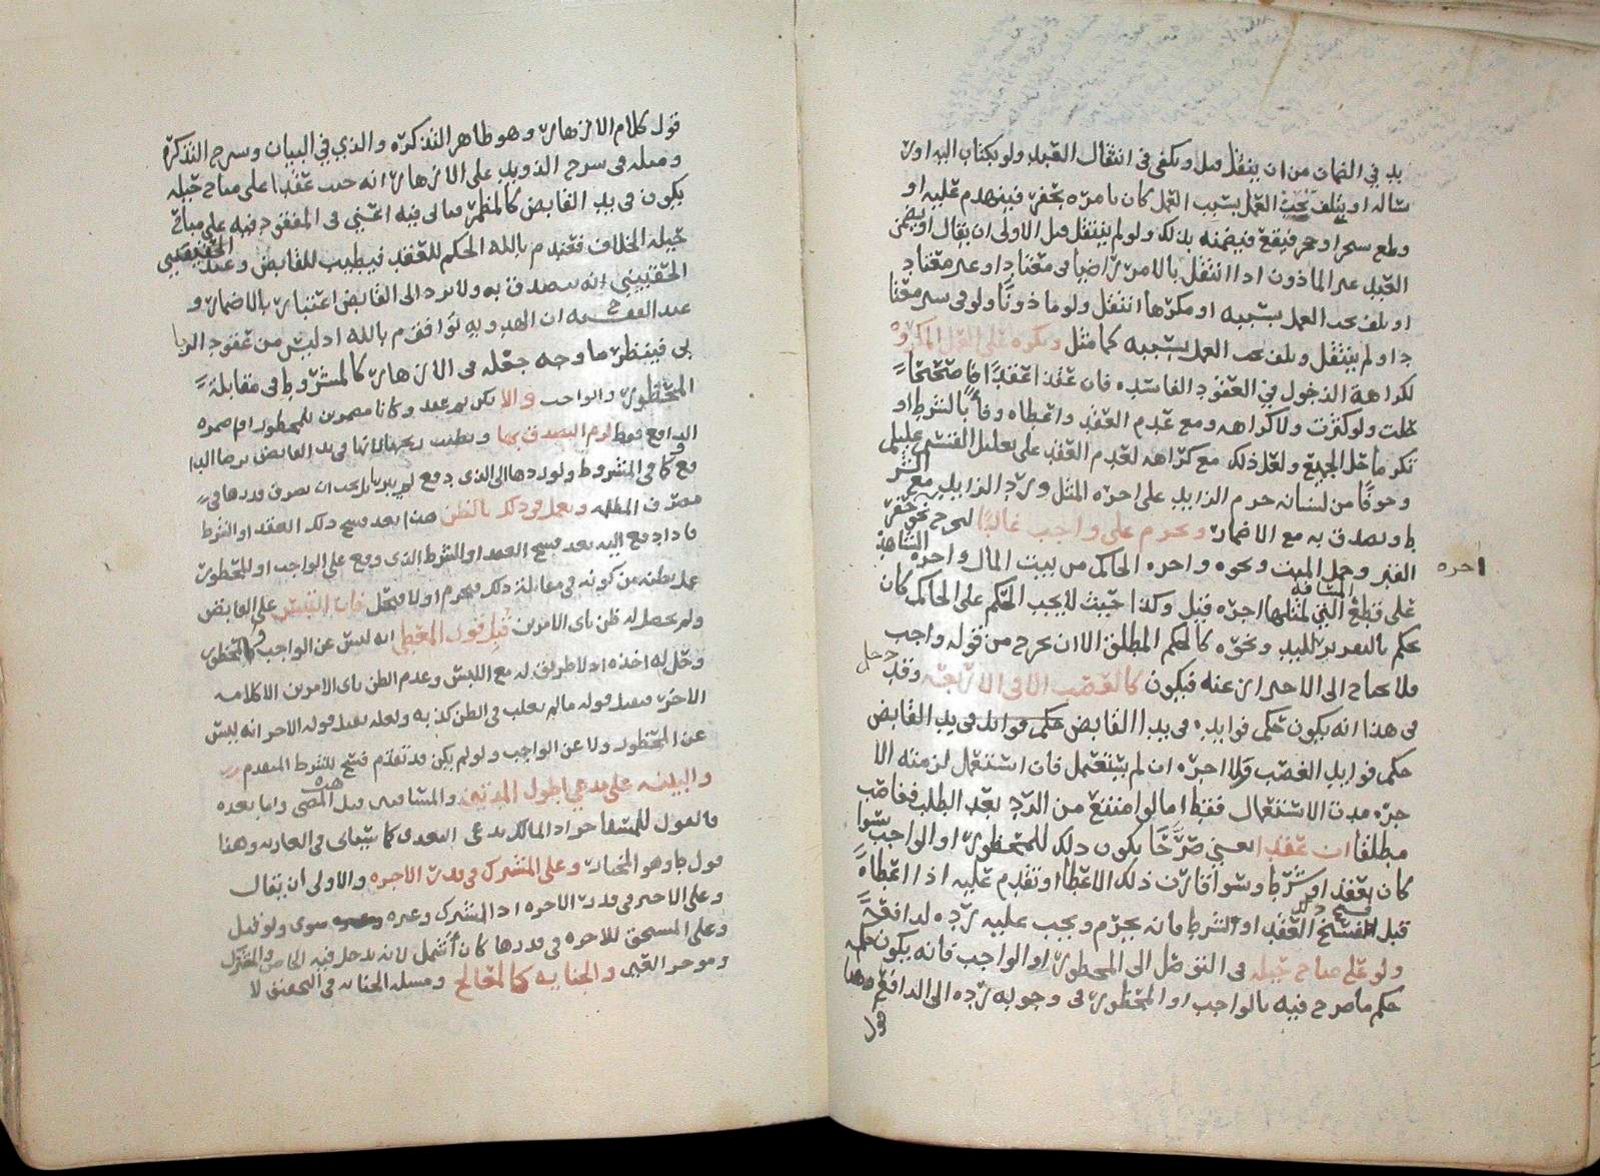 يد في الضمان من ان ينتقل قيل ويكفى فى انتقال العبد ولو بكتاب اليه او ر
ساله او يتلف تحت العمل بسبب العمل كان يامره بحفر فينهدم عليه او
وطلع شجرا او حجر فيقع فيضمنه بذلك ولو لم ينتقل قيل الاولى ان يقال او يضمن
العبد غير الماذون اذا انتقل بالامر راضيا فى معتاد او غير معتاد
او تلف تحت العمل بسببه او مكرها انتقل ولو ماذونا ولو فى سير معتا
د او لم ينتقل وتلف تحت العمل بسببه كما مثل ويكره على العمل المكروه
لكراهة الدخول في العقود الفاسده فان عقدا عقدا صحيحا
حلت ولو كثرت ولا كراهه ومع عدم العقد واعطاه وفا بالشرط او
تكرما حل الجميع ولعل ذلك مع كراهه لعدم العقد على تعليل الفتشى عليل
وخوفا من لسانه حرم الزايد على اجره المثل ورد الزايد مع الشر
ط وتصدق به مع الاضمار ويحرم على واجب غالبا ليخرج نحو حفر
القبر وحمل الميت ونحوه واجره الحاكم من بيت المال واجره الشاهد
اجره
على قطع المسافه التي لمثلها اجره قيل وكذا حيث لا يجب الحكم على الحاكم كان
حكم بالتقرير لليد ونحوه كالحكم المطلق الا ان يخرج من قوله واجب
فلا يحتاج الى الاحتراز عنه فيكون كالغصب الا فى الاربعه وقد دخل
فى هذا انه يكون حكم فوايده فى يد القابض حكم فوايد فى يد القابض
حكم فوايد الغصب ولا اجره ان لم يستعمل فان استعمل لزمته الا
جره مدة الاستعمال فقط اما لو امتنع من الرد بعد الطلب فغاصب
مطلقا ان عقدا يعني صرحا بكون ذلك للمحظور او الواجب سوا
كان بعقد او شرط وسوا قارن ذلك الاعطا او تقدم عليه اذا اعطاه
قبل فسخ ذلك العقد او الشرط فانه يحرم ويجب عليه رده لدافعه
ولو على مباح حيله فى التوصل الى المحظور او الواجب فانه يكون حكمه
حكم ما صرح فيه بالواجب او المحظور فى وجوب رده الى الدافع وهذا
قول
قول كلام الازهار وهو ظاهر التذكره والذي في البيان وشرح التذكرة
ومثله فى شرح الذويد على الازهار انه حيث عقدا على مباح حيله
يكون فى يد القابض كالمظمر فيما لى فيه اعني فى المعقود فيه على مباح
حيله الخلاف فعندم بالله الحكم للعقد فيطيب للقابض وعند الحقيني
الحقيني انه يتصدق به ولا يرد الى القابض اعتبار بالاضمار و
عند الفقيه ح ان الهدويه توافق م بالله اذ ليس من عقود الربا
بى فينظر ما وجه جعله فى الازهار كالمشروط فى مقابلة
المحظور والواجب والا يكن ثم عقد وكانا مضمرين للمحظور ام ضمره
الدافع فقط لزم التصدق بها ويطيب ربحها لانها فى يد القابض برضا الدا
فع كما فى المشروط ولو ردها الى الذي دفع لم يبر بل يجب ان يصرف قدرها في
مصرف المظلمه ويعمل فى ذلك بالظن هذا بعد فسخ ذلك العقد او الشرط
فاذا دفع اليه بعد فسخ العقد او الشرط الذى وقع على الواجب او المحظور
عمل بظنه من كونه فى مقابلة ذلك فيحرم او لا فيحل فان التبس على القابض
ولم يحصل له ظن باى الامرين قبل قول المعطي انه ليس عن الواجب والمحظور
وحل له اخذه اذ لا طريق له مع اللبس وعدم الظن باى الامرين الا كلامه
الاخر فيقبل قوله ما لم يغلب فى الظن كذبه ولعله يقبل قوله الاخر انه ليس
عن المحظور ولا عن الواجب ولو لم يكن قد تقدم فسخ للشرط المتقدم
والبينه على مدعي اطول المدتين والمشاهره قبل المضي واما بعده
فالقول للمستاجر اذ المالك يدعى التعدى كما سياتى فى العاريه وهذا
قول ط وهو المختار وعلى المشترك فى قدر الاجره والاولى ان يقال
وعلى الاجير فى قدر الاجره اذ المشترك وغيره سوى ولو قيل
وعلى المستحق للاجره فى قدرها كان أشمل لانه يدخل فيه الخاص والمشترك
وموجر العين والجنايه كالمعالج ومسئله الختان فى التحقيق لا